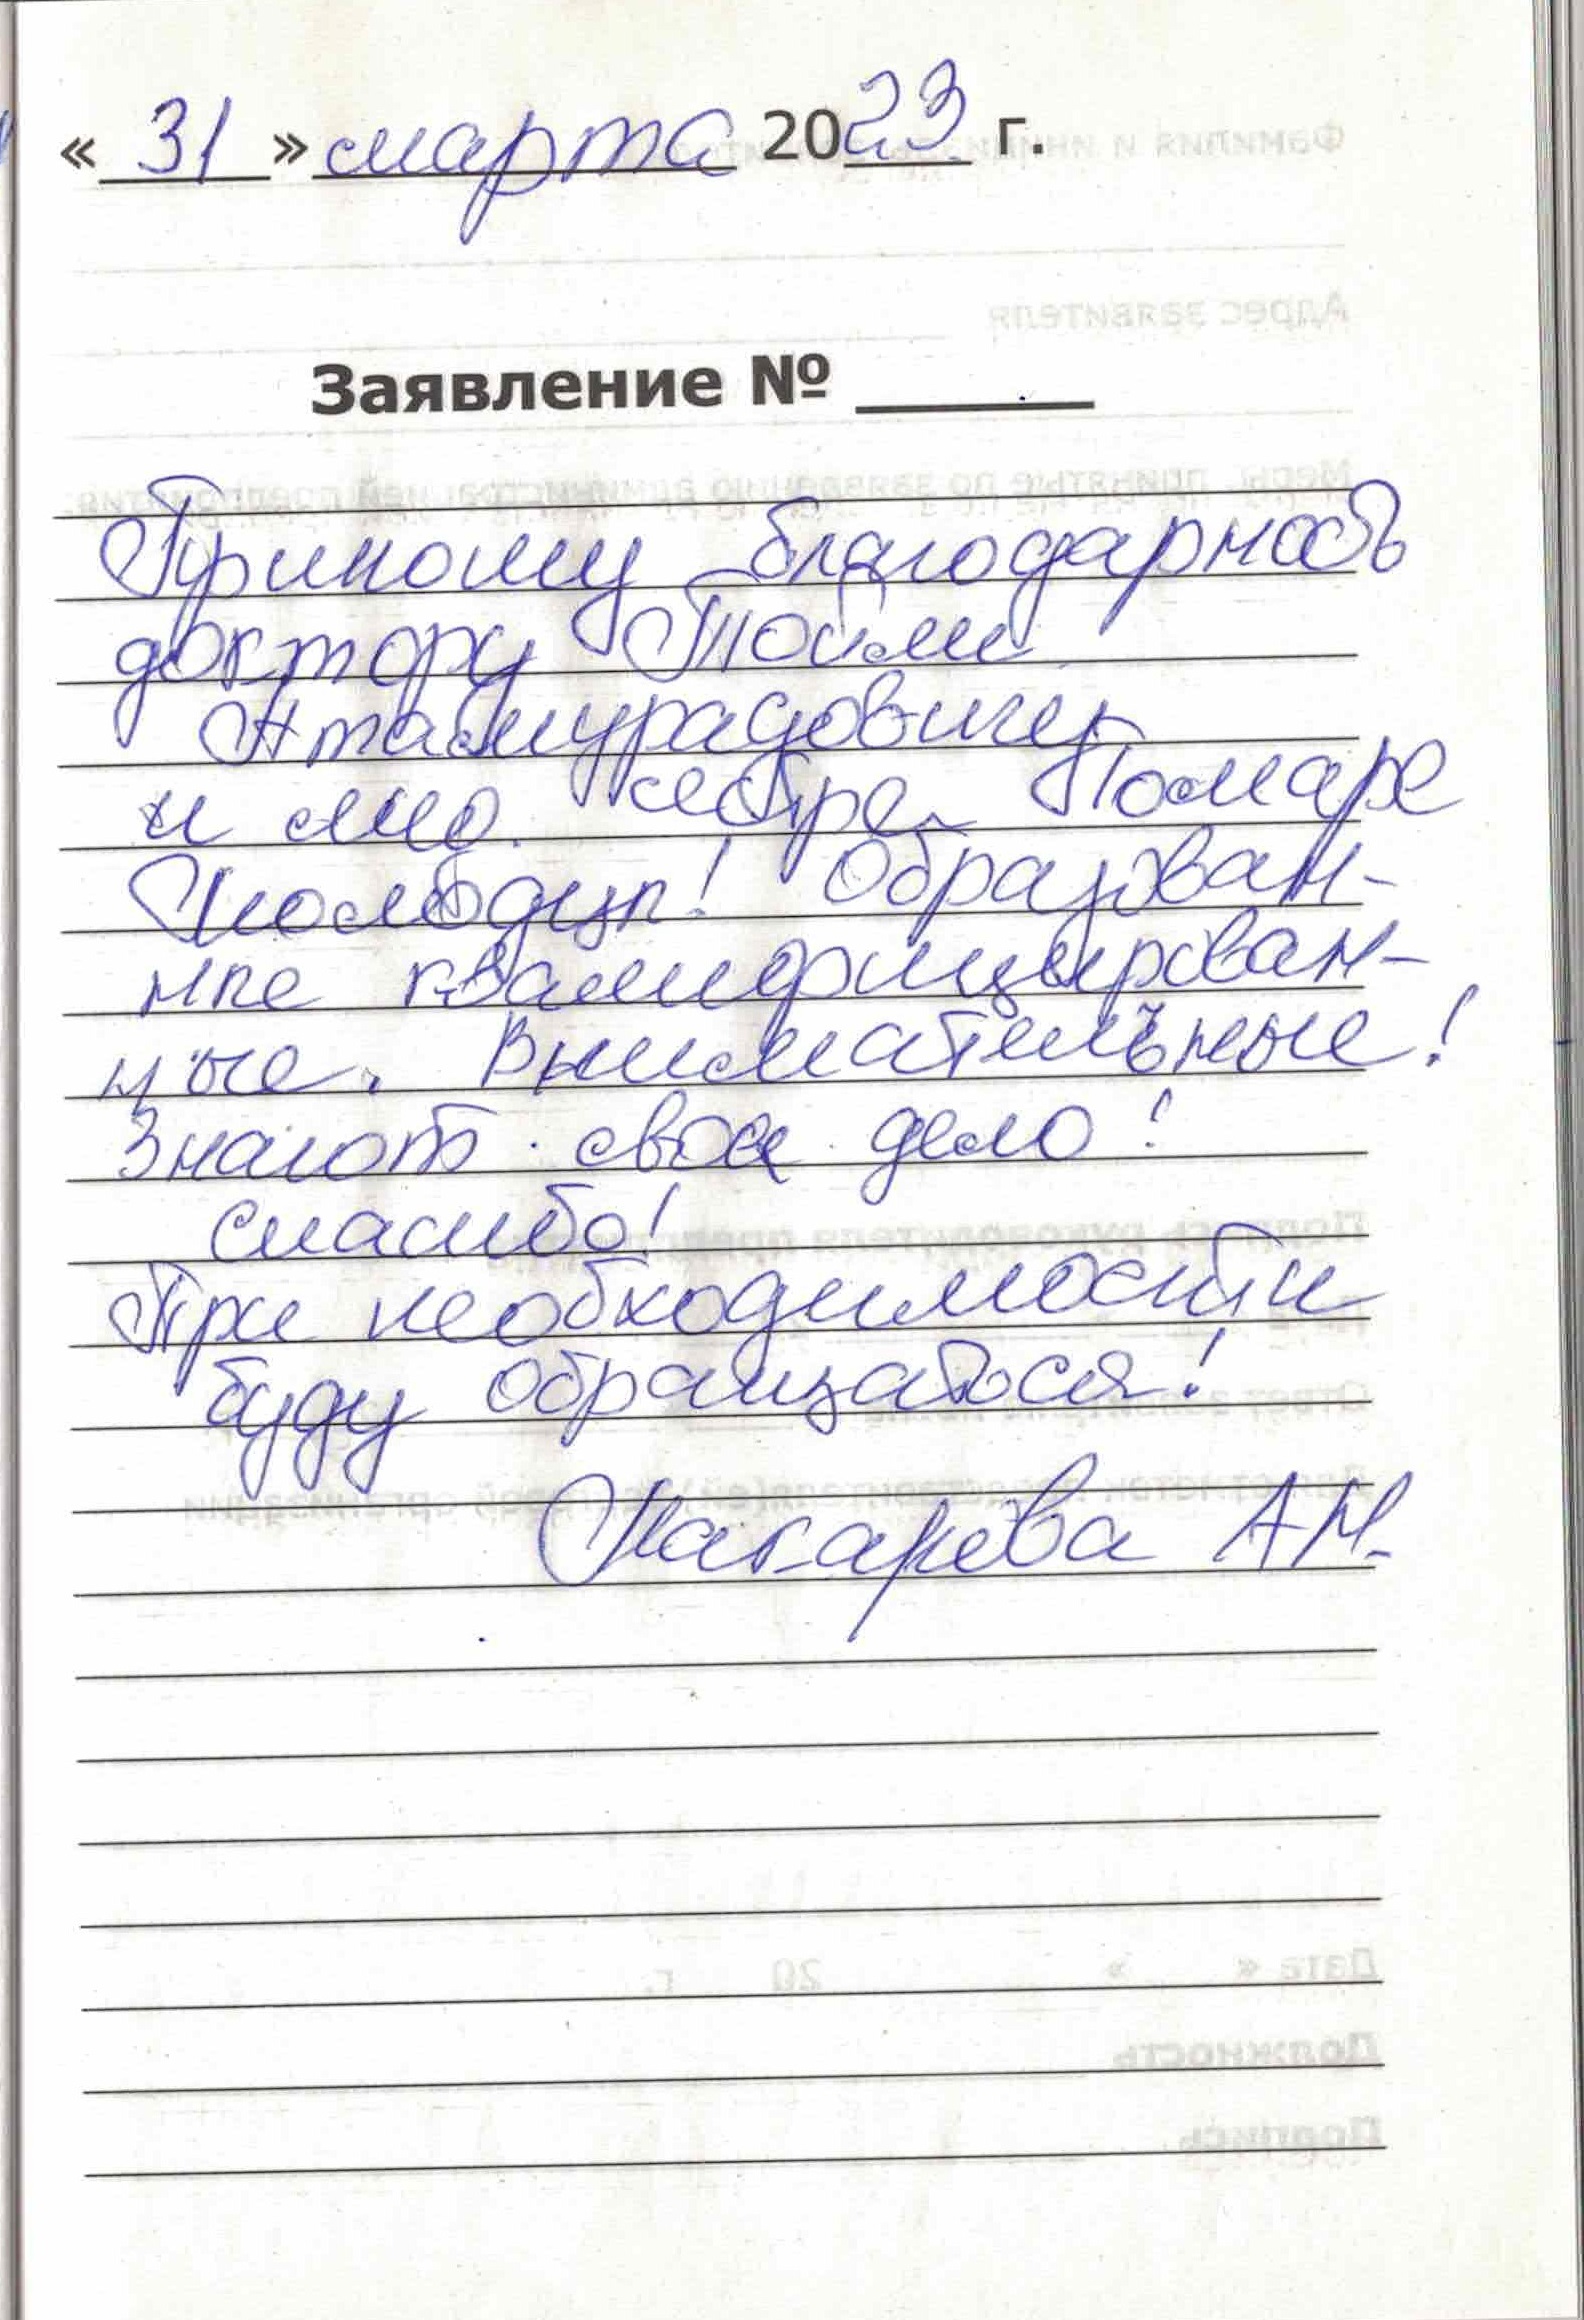 « 31 » марта 2023 г.
Заявление №
Приношу благодарность
доктору Тойли
Атамурадовичу
и мед. сестре Тамаре
Молодцы! Образован-
ные квалифицирован-
ные. Внимательные!
Знают свое дело!
спасибо!
При необходимости
буду обращаться!
Макарева А Н.